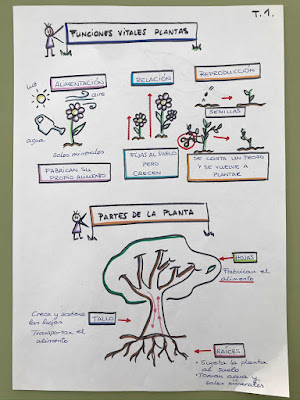 T.1.
FUNCIONES VITALES PLANTAS
ALIMENTACIÓN
luz
aire
agua
sales minerales
FABRICAN SU
PROPIO ALIMENTO
RELACIÓN
FIJAS AL SUELO
PERO
CRECEN
REPRODUCCIÓN
SEMILLAS
SE CORTA UN TROZO
Y SE VUELVE A
PLANTAR
PARTES DE LA PLANTA
HOJAS
Fabrican el
alimento
Crece y sostiene
las hojas
Transporta el
alimento
TALLO
RAÍCES
• Sujeta la planta
al suelo
• Toman agua y
sales minerales